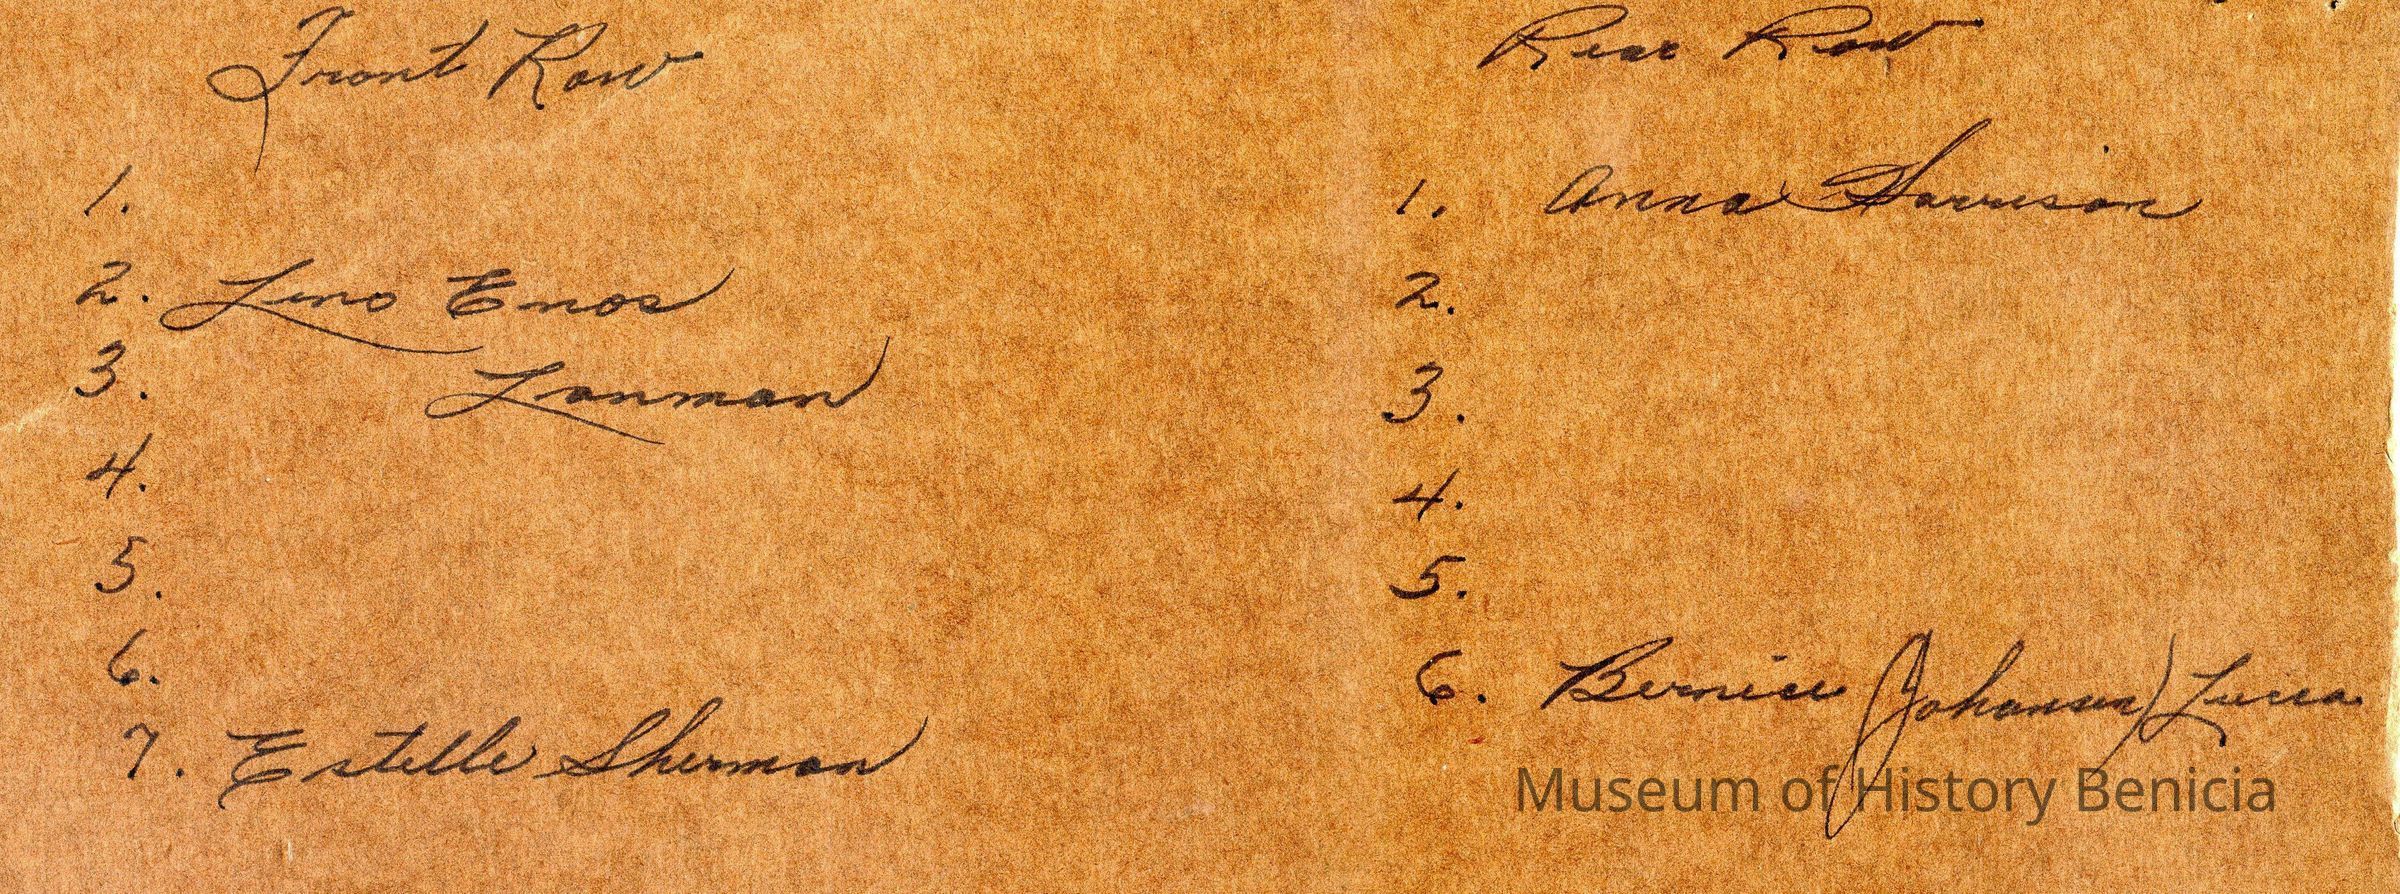 Front Row
1.
2. Leno Enos
3. Lanman
4.
5.
6.
7. Estelle Sherman
Rear Row
1. Anna Harrison
2.
3.
4.
5.
6. Bernice (Johansen) Lucca
Museum of History Benicia